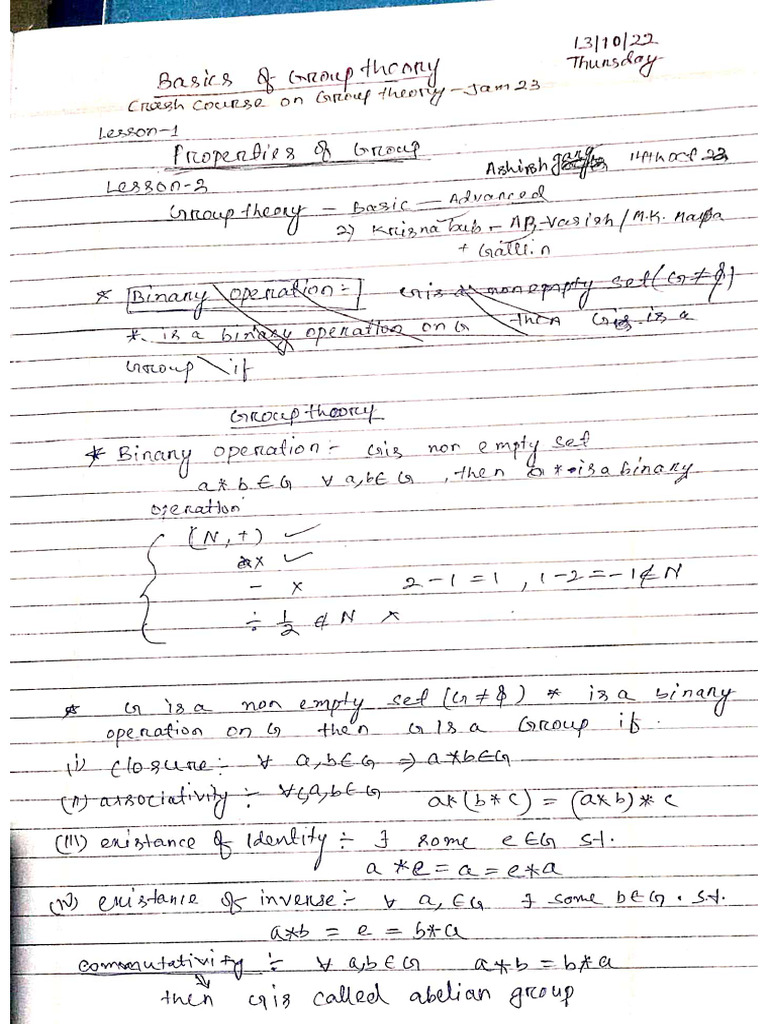 13/10/22
Thursday
Basics of Group theory
Crash Course on Group theory - Jam 23
Lesson-1
Properties of Group
Ashirsh garg 14th oct 22
Lesson-2
Group theory - Basic - Advanced
2) Krisna Pub - AR Vasish / M.K.
+ Gallin
* Binary operation:- G is a nonempty set (G ≠ ϕ)
* is a binary operation on G then G is a
Group if
Group theory
* Binary operation:- G is non empty set
a * b ∈ G ∀ a,b ∈ G, then * is a binary
operation
(N, +) ✓
× ✓
- × 2-1 = 1, 1-2 = -1 ∉ N
÷ 1/2 ∉ N ×
* G is a non empty set (G ≠ ϕ) * is a binary
operation on G then G is a Group if.
(i) closure:- ∀ a,b ∈ G ⇒ a*b ∈ G
(ii) associativity :- ∀ c,a,b ∈ G a*(b*c) = (a*b)*c
(iii) existance of Identity :- ∃ some e ∈ G s.t.
a * e = a = e * a
(iv) existance of inverse:- ∀ a, ∈ G ∃ some b ∈ G . s.t.
a*b = e = b*a
commutativity :- ∀ a,b ∈ G a*b = b*a
then G is called abelian group